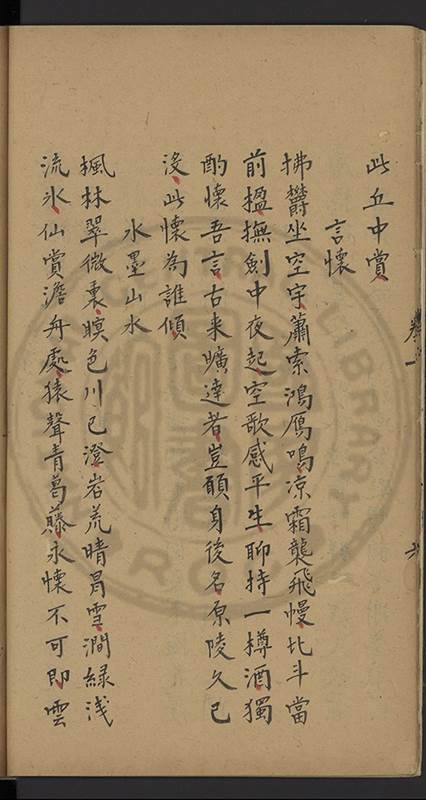 此丘中賞
言懷
拂欝坐空宇蕭索鴻鴈鳴凉霜襲飛幔北斗當
前楹撫劍中夜起空歌感平生聊持一樽酒獨
酌懷吾言古来曠達者豈願身後名原陵久已
沒此懷為誰傾
水墨山水
楓林翠微裏暝色川已澄岩荒晴冐雪澗緑浅
流氷仙賞澹舟處猿聲青葛藤永懐不可即雲